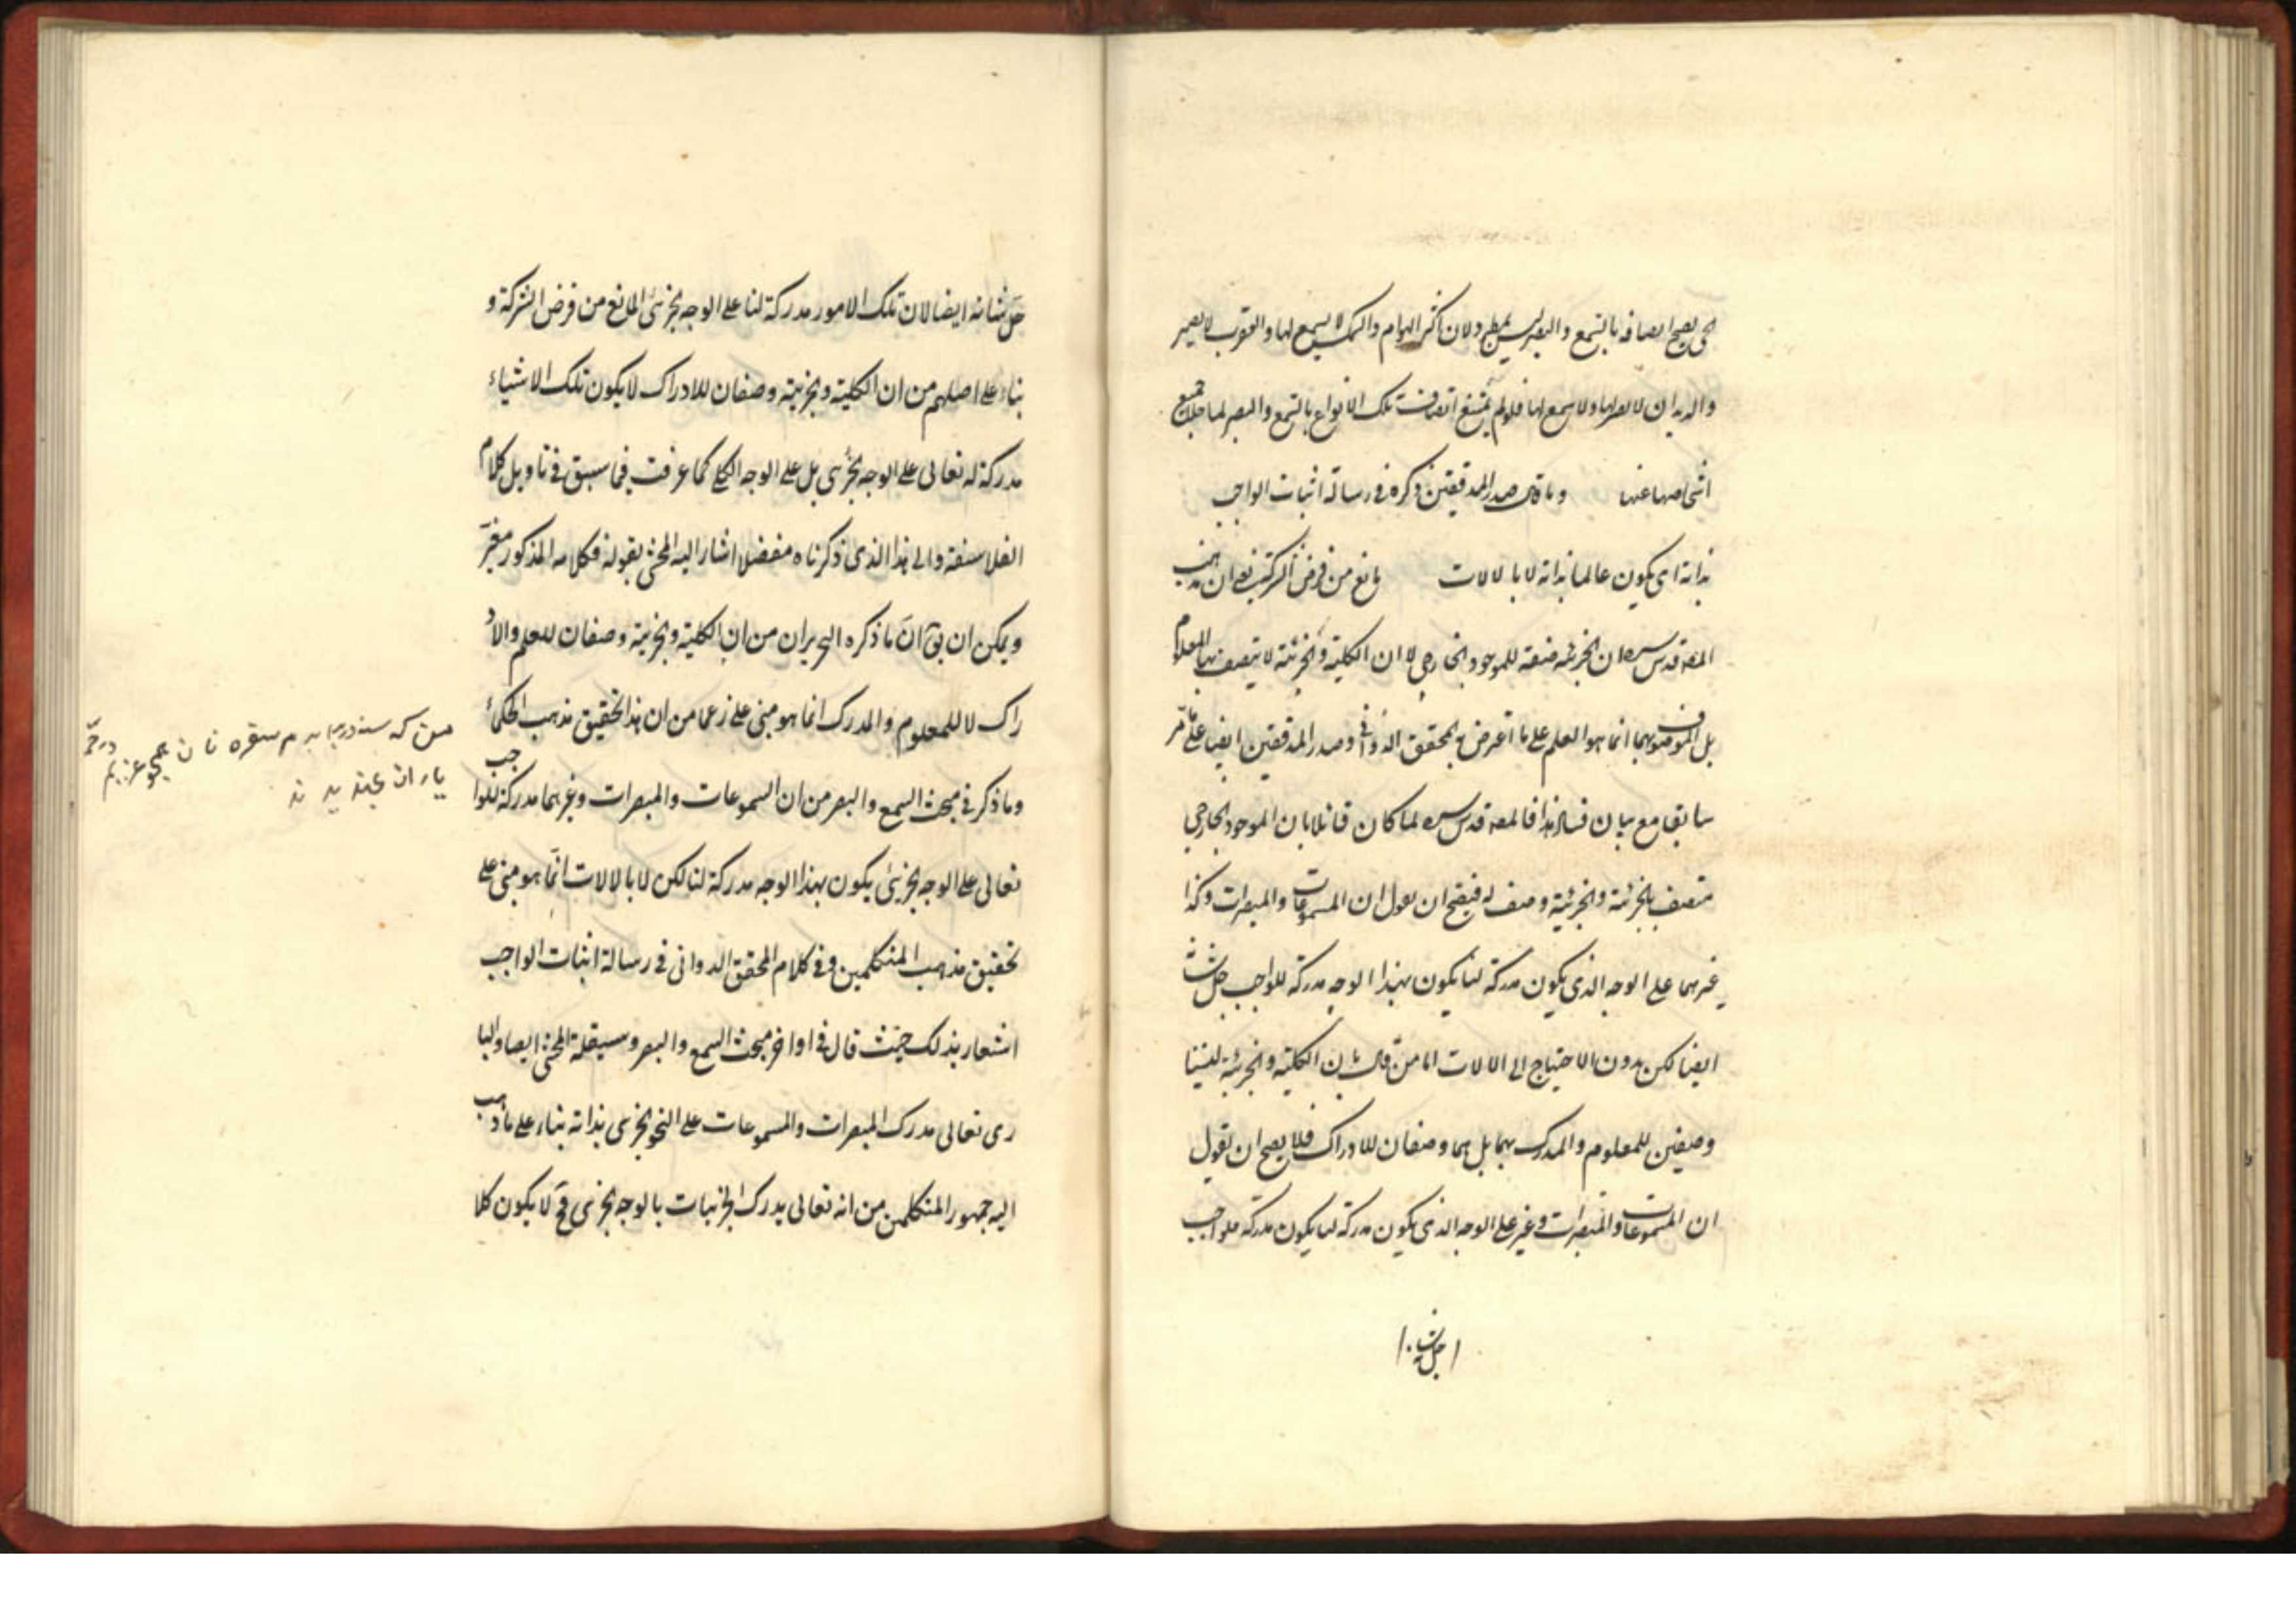 الحى يصح اتصافه بالسمع والبصر ليس بمطرد ولان اكثر الهوام والسمك لا يسمع لها والعقرب لا بصر
والديدان لا بصر لها ولا سمع لها فلو لم يمتنع اتصاف تلك الانواع بالسمع والبصر لما خلا جميع
اشخاصها عنها وما قال صدر المدققين ذكره في رسالة اثبات الواجب
بذاته اى يكون عالما بذاته لا بالالات مانع من فرض الشركة يعنى ان مذهب
المصه قدس سره ان الجزئية صفة للموجود الخارجى لا ان الكلية والجزئية لا يتصف بهما المعلوم
بل الموصوف بهما انما هو العلم على ما اعترض به المحقق الدوانى وصدر المدققين ايضا على ما مر
سابقا مع بيان فساد هذا فالمصه قدس سره لما كان قائلا بان الموجود الخارجى
متصف بالجزئية والجزئية وصف له فيصح ان يقول ان المسموعات والمبصرات وكذا
غيرهما على الوجه الذى يكون مدركة لنا يكون بهذا الوجه مدركة للواجب جل شانه
ايضا لكن بدون الاحتياج الى الالات اما من قال بان الكلية والجزئية ليستا
وصفين للمعلوم والمدرك بهما بل هما وصفان للادراك فلا يصح ان تقول
ان المسموعات والمبصرات وغير على الوجه الذى يكون مدركة لنا يكون مدركة للواجب
جل شانه
جل شانه ايضا لان تلك الامور مدركة لنا على الوجه الجزئى المانع من فرض الشركة و
بناء على اصلهم من ان الكلية والجزئية وصفان للادراك لا يكون تلك الاشياء
مدركة له تعالى على الوجه الجزئى بل على الوجه الكلى كما عرفت فيما سبق فى تاويل كلام
الفلاسفة والى هذا الذى ذكرناه مفصلا اشار اليه المحشى بقوله فكلامه المذكور
ويمكن ان يق ان ما ذكره النحريران من ان الكلية والجزئية وصفان للعلم والاد
راك لا للمعلوم والمدرك انما هو مبنى على زعمها من ان هذا التحقيق مذهب الحكماء
وما ذكر فى مبحث السمع والبصر من ان المسموعات والمبصرات وغيرهما مدركة للواجب
تعالى على الوجه الجزئى يكون بهذا الوجه مدركة لنا لكن لا بالالات انما هو مبنى على
تحقيق مذهب المتكلمين وفى كلام المحقق الدوانى فى رسالة اثبات الواجب
اشعار بذلك حيث قال فى اواخر مبحث السمع والبصر وسينقله المحشى ايضا والبا
رى تعالى مدرك المبصرات والمسموعات على النحو الجزئى بذاته بناء على ما ذهب
اليه جمهور المتكلمين من انه تعالى يدرك الجزئيات بالوجه الجزئى فح لا يكون كلا